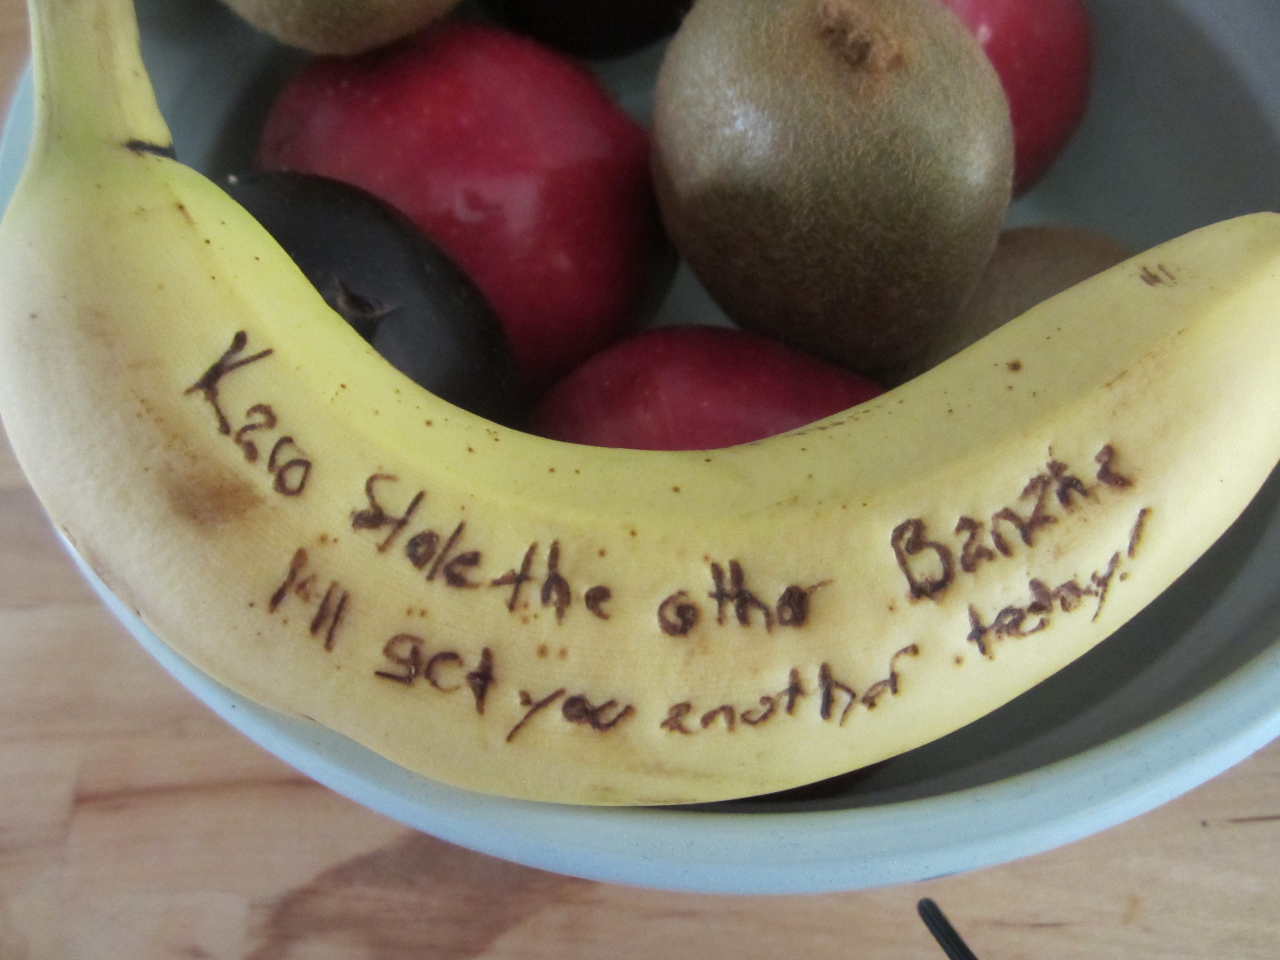 Karo Stole the other Banana
I'll get you another today!